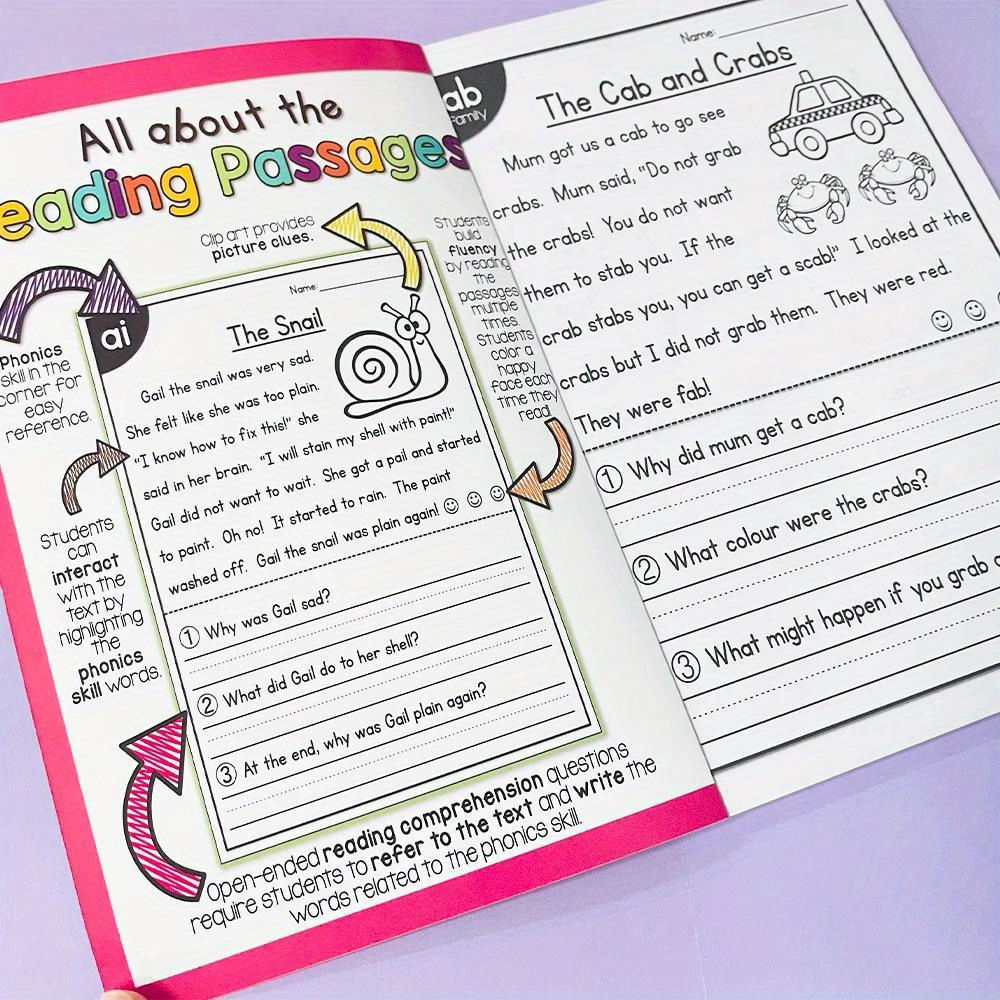 All about the
eading Passages
Clip art provides
picture clues.
Students
build
fluency
by reading
the
passages
multiple
times.
Students
color a
happy
face each
time they
read!
Phonics
skill in the
corner for
easy
reference.
Students
can
interact
with the
text by
highlighting
the
phonics
skill words.
ai
Name:
The Snail
Gail the snail was very sad.
She felt like she was too plain.
"I know how to fix this!" she
said in her brain. "I will stain my shell with paint!"
Gail did not want to wait. She got a pail and started
to paint. Oh no! It started to rain. The paint
washed off. Gail the snail was plain again!
1 Why was Gail sad?
2 What did Gail do to her shell?
3 At the end, why was Gail plain again?
Open-ended reading comprehension questions
require students to refer to the text and write the
words related to the phonics skill.
ab
Family
Name:
The Cab and Crabs
Mum got us a cab to go see
crabs. Mum said, "Do not grab
the crabs! You do not want
them to stab you. If the
crab stabs you, you can get a scab!" I looked at the
crabs but I did not grab them. They were red.
They were fab!
1 Why did mum get a cab?
2 What colour were the crabs?
3 What might happen if you grab a